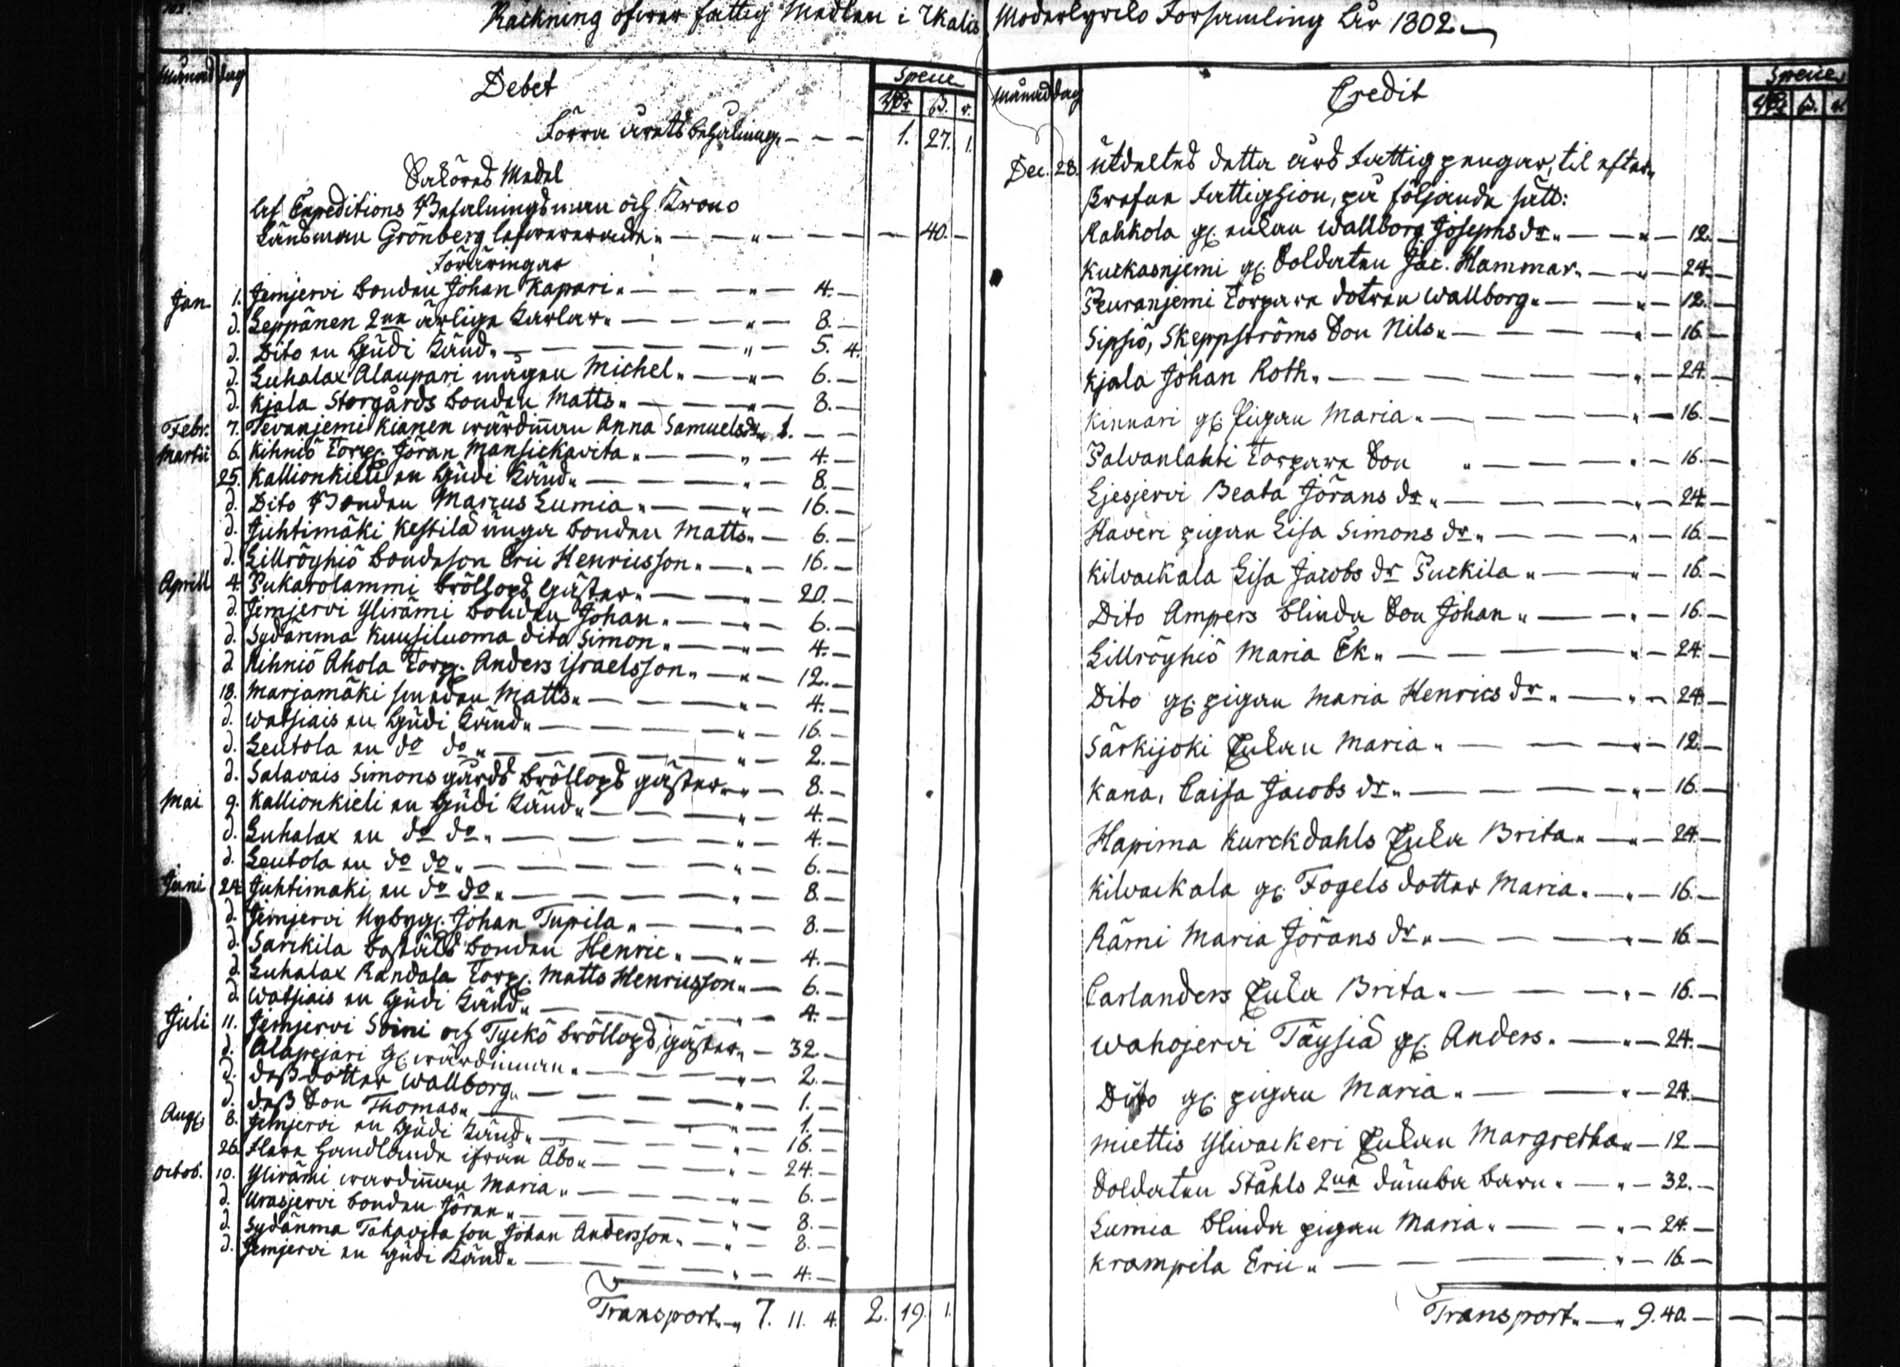 Räckning öfwer fattig Medlen i Ikalis Moderkyrko Församling År 1802
Månad dag Debet Specie
Rdr ß. r.
Förra årets behållning 1. 27. 1.
Saköres Medel
Af Expeditions Befalningsman och Krono
Länsman Grönberg lefwererade 40. –
Föräringar
Jan. 1. Jemjervi bonden Johan Kapari 4. –
d. Leppänen 2ne ärlige Karlar 8. –
d. Dito en Gudi Känd 5. 4.
d. Luhalax Alaupari mågen Michel 6. –
d. Kjala Storgårds bonden Matts 8. –
Febr. 7. Tevanjemi Kianen wärdinnan Anna Samuels dr 1. – –
Martii 6. Kihniö Torp. Jöran Mansickavita 4. –
25. Kallionkieli en Gudi Känd 8. –
d. Dito Bonden Marcus Lumia 16. –
d. Juhtimäki Kestilä unga bonden Matts 6. –
d. Lillröyhiö bondeson Eric Henricsson 16. –
Aprill 4. Pukarolammi bröllops gäster 20. –
d. Jemjervi Ylirämi bonden Johan 6. –
d. Sydänma Kuusiluoma dito Simon 4. –
d. Kihniö Ahola Torp. Anders Israelsson 12. –
18. Marjamäki Matts 4. –
d. Watsiais en Gudi Känd 16. –
d. Leutola en do do 2. –
d. Salavais Simons gårds bröllops gäster 8. –
Mai 9. Kallionkieli en Gudi Känd 4. –
d. Luhalax en do do 4. –
d. Leutola en do do 6. –
Juni 24. Juhtimaki en do do 8. –
d. Jemjervi Nybygg. Johan Tupila 8. –
d. Sarckila boställs bonden Henric 4. –
d. Luhalax Randala Torp. Matts Henricsson 6. –
d. Watsiais en Gudi Känd 4. –
Juli 11. Jemjervi Soini och Tyckö bröllops gäster 32. –
d. Alapejari gl. wärdinnan 2. –
d. dess dotter Wallborg 1. –
d. dess Son Thomas 1. –
Aug. 8. Jemjervi en Gudi Känd 16. –
26. Flere Handlande ifrån Åbo 24. –
Octob. 10. Ylirämi wardinnan Maria 6. –
d. Urasjervi bonden Jöran 8. –
d. Sydänma Tahavita son Johan Andersson 8. –
d. Jemjervi en Gudi Känd 4. –
Transport 7. 11. 4. 2. 19. 1.
Månad dag Credit Specie
Rdr ß. r.
Dec. 28. Utdeltes detta års Fattig pengar, til efter
skrefne Fattighion, på följande sätt:
Rahkola gl. enkan Wallborg Josephs dr 12. –
Kurkasnjemi gl. Soldaten Jac. Hammar 24. –
Peuranjemi Torpare dotren Wallborg 12. –
Sipsiö, Skeppströms Son Nils 16. –
Kjala Johan Roth 24. –
Kinnari gl. Pigan Maria 16. –
Palvanlahti Torpare Son 16. –
Ljesjervi Beata Jörans dr 24. –
Haveri pigan Lisa Simons dr 16. –
Kilvackala Lisa Jacobs dr Puckila 16. –
Dito Ampers blinda Son Johan 16. –
Lillröyhiö Maria Ek 24. –
Dito gl. pigan Maria Henrics dr 24. –
Särkijoki Enkan Maria 12. –
Kana, Caisa Jacobs dr 16. –
Hapima Kurckdahls Enka Brita 24. –
Kilvackala gl. Fogels dotter Maria 16. –
Rämi Maria Jörans dr 16. –
Carlanders Enka Brita 16. –
Wahojervi Täysiä gl. Anders 24. –
Dito gl. pigan Maria 24. –
Miettis Ylivackeri Enkan Margretha 12 –
Soldaten Ståhls 2ne dumba barn 32. –
Lumia blinda pigan Maria 24. –
Krampila Eric 16. –
Transport 9. 40. – – – –